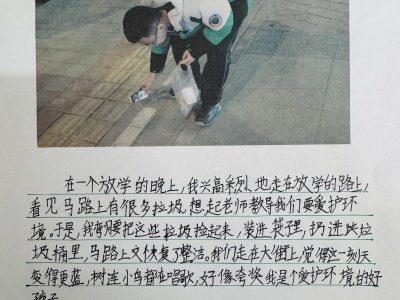 在一个放学的晚上,我兴高采烈地走在放学的路上,
看见马路上有很多垃圾.想起老师教导我们要爱护环
境。于是,我弯腰把这些垃圾捡起来,装进袋里,扔进垃
圾桶里,马路上又恢复了整洁。我们走在大街上,觉得这一刻天
变得更蓝,树连小鸟都在唱歌,好像夸奖我是个爱护环境的好
孩子